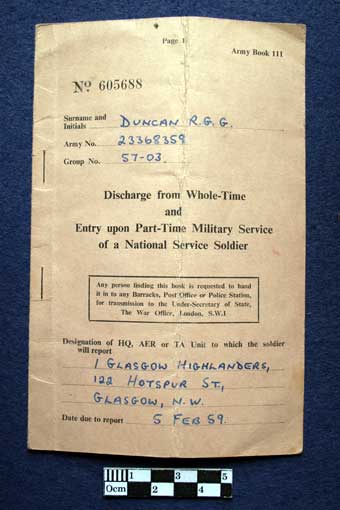 Page 1
Army Book 111
No 605688
Surname and Initials DUNCAN R.G.G.
Army No. 23368359
Group No. 57-03.
Discharge from Whole-Time
and
Entry upon Part-Time Military Service
of a National Service Soldier
Any person finding this book is requested to hand
it in to any Barracks, Post Office or Police Station,
for transmission to the Under-Secretary of State,
The War Office, London, S.W.1
Designation of HQ, AER or TA Unit to which the soldier
will report
1 GLASGOW HIGHLANDERS,
122 HOTSPUR ST,
GLASGOW, N.W.
Date due to report 5 FEB 59.
1 3 5
0cm 2 4